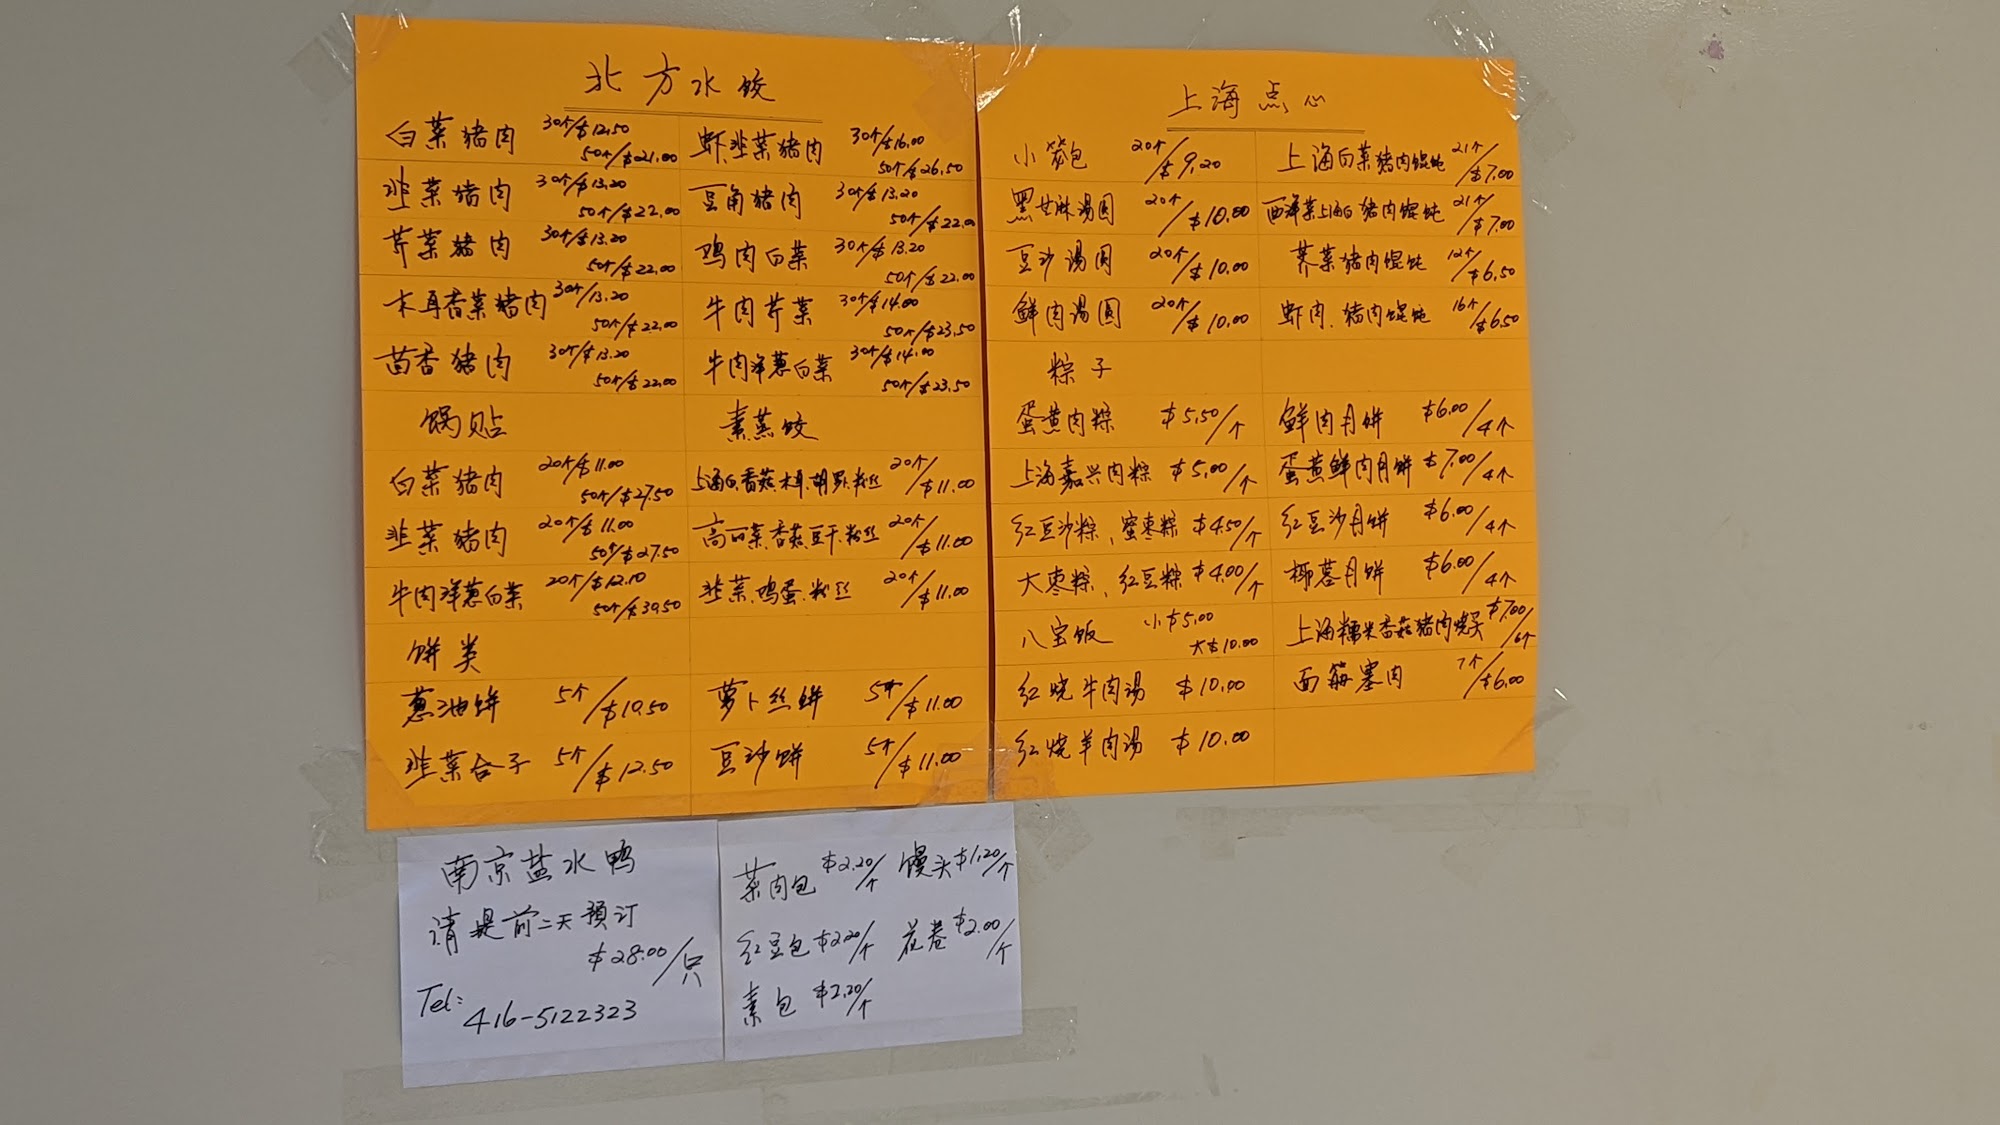 北方水饺
白菜猪肉 30个/$12.50 50个/$21.00
虾.韭菜猪肉 30个/$16.00 50个/$26.50
韭菜猪肉 30个/$13.20 50个/$22.00
豆角猪肉 30个/$13.20 50个/$22.00
芹菜猪肉 30个/$13.20 50个/$22.00
鸡肉白菜 30个/$13.20 50个/$22.00
木耳香菜猪肉 30个/13.20 50个/$22.00
牛肉芹菜 30个/$14.00 50个/$23.50
茴香猪肉 30个/$13.20 50个/$22.00
牛肉洋葱白菜 30个/$14.00 50个/$23.50
锅贴
素蒸饺
白菜猪肉 20个/$11.00 50个/$27.50
上海白.香菇.木耳.胡萝.粉丝 20个/$11.00
韭菜猪肉 20个/$11.00 50个/$27.50
高白菜.香菇.豆干.粉丝 20个/$11.00
牛肉洋葱白菜 20个/$12.10 50个/$30.50
韭菜.鸡蛋.粉丝 20个/$11.00
饼类
葱油饼 5个/$10.50
萝卜丝饼 5个/$11.00
韭菜合子 5个/$12.50
豆沙饼 5个/$11.00
上海点心
小笼包 20个/$9.20
上海白菜猪肉馄饨 21个/$7.00
黑芝麻汤圆 20个/$10.00
西洋菜上海白猪肉馄饨 21个/$7.00
豆沙汤圆 20个/$10.00
荠菜猪肉馄饨 12个/$6.50
鲜肉汤圆 20个/$10.00
虾肉、猪肉馄饨 16个/$6.50
粽子
蛋黄肉粽 $5.50/个
鲜肉月饼 $6.00/4个
上海嘉兴肉粽 $5.00/个
蛋黄鲜肉月饼 $7.00/4个
红豆沙粽、蜜枣粽 $4.50/个
红豆沙月饼 $6.00/4个
大枣粽、红豆粽 $4.00/个
椰蓉月饼 $6.00/4个
八宝饭 小$5.00 大$10.00
上海糯米香菇猪肉烧卖 $7.00/6个
红烧牛肉汤 $10.00
面筋塞肉 7个/$6.00
红烧羊肉汤 $10.00
南京盐水鸭
请提前二天预订
$28.00/只
Tel: 416-5122323
菜肉包 $2.20/个 馒头 $1.20/个
红豆包 $2.20/个 花卷 $2.00/个
素包 $2.20/个